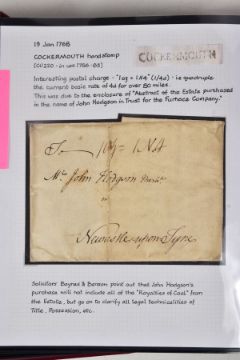 19 Jan 1786
COCKERMOUTH handstamp
COCKERMOUTH
Interesting postal charge - "1oz = 1N4" (1/4d) - ie quadruple
the current basic rate of 4d for over 80 miles.
This was due to the enclosure of "Abstract of the Estate purchased
in the name of John Hodgson in Trust for the Furnace Company."
To
Mr John Hodgson
Newcastle upon Tyne
Solicitors Baynes & Benson point out that John Hodgson's
purchase will not include all of the "Royalties of Coal" from
the Estate, but go on to clarify all legal technicalities of
Title, Possession, etc.